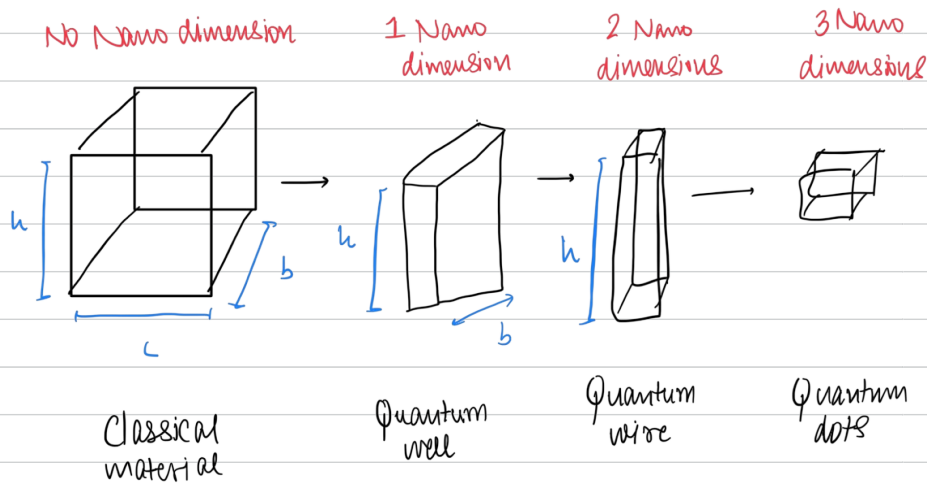 No Nano dimension
1 Nano
dimension
2 Nano
dimensions
3 Nano
dimensions
h
b
L
h
b
h
Classical
material
Quantum
well
Quantum
wire
Quantum
dots